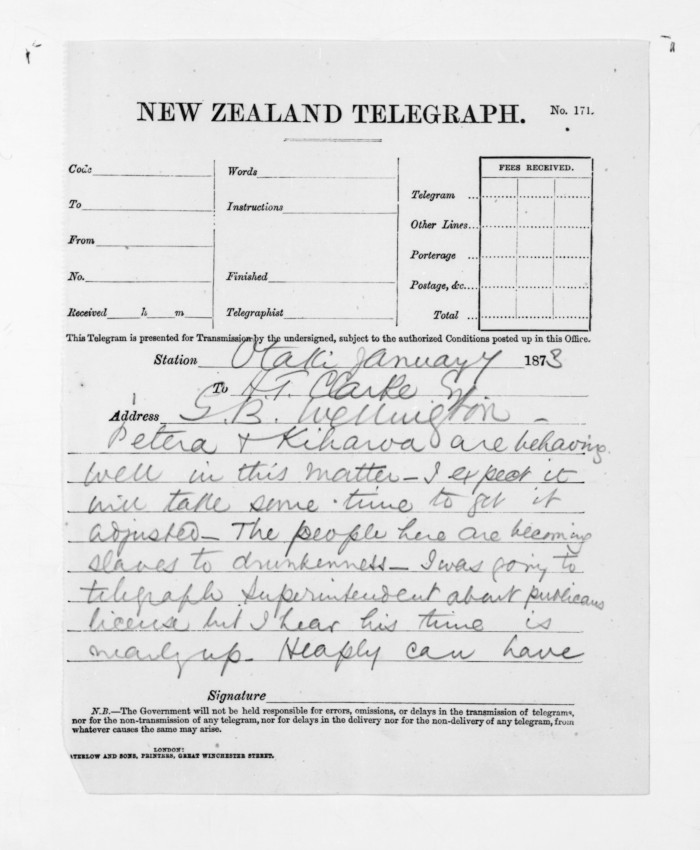 NEW ZEALAND TELEGRAPH. No. 171.
Code
Words
FEES RECEIVED.
To
Instructions
Telegram ...
Other Lines...
From
Porterage ...
No.
Finished
Postage, &c....
Received h m
Telegraphist
Total ...
This Telegram is presented for Transmission by the undersigned, subject to the authorized Conditions posted up in this Office.
Station Otaki January 7 1873
To H.T. Clarke
Address G. B. Wellington -
Petera + Kiharoa are behaving
well in this matter - I expect it
will take some time to get it
adjusted - The people here are becoming
slaves to drunkenness - I was going to
telegraph Superintendent about publicans
license but I hear his time is
nearly up - Heaply can have
Signature
N.B.—The Government will not be held responsible for errors, omissions, or delays in the transmission of telegrams,
nor for the non-transmission of any telegram, nor for delays in the delivery nor for the non-delivery of any telegram, from
whatever causes the same may arise.
LONDON:
ATERLOW AND SONS, PRINTERS, GREAT WINCHESTER STREET.